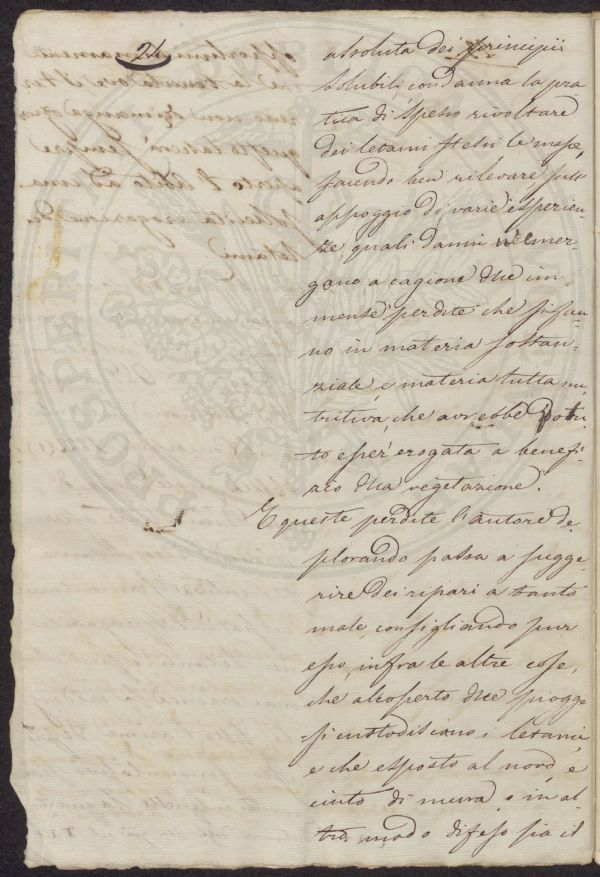 24
assoluta dei principii
solubili condanna la pra
tica di spesso rivoltare
dei letami stessi le masse,
facendo ben rilevare, sull'
appoggio di varie esperien
ze quali danni ne emer
gano a cagione delle im-
mense perdite che si fan
no in materia sostan-
ziale, e materia tutta nu
tritiva, che avrebbe potu
to esser erogata a benefi
zio della vegetazione.
E queste perdite l'autore de
plorando passa a sugge-
rire dei ripari a tanto
male, consigliando pur
esso, infra le altre cose,
che al coperto delle piogge
si custodiscano i letami,
e che esposto al nord, e
cinto di mura, o in al
tro modo difeso sia il